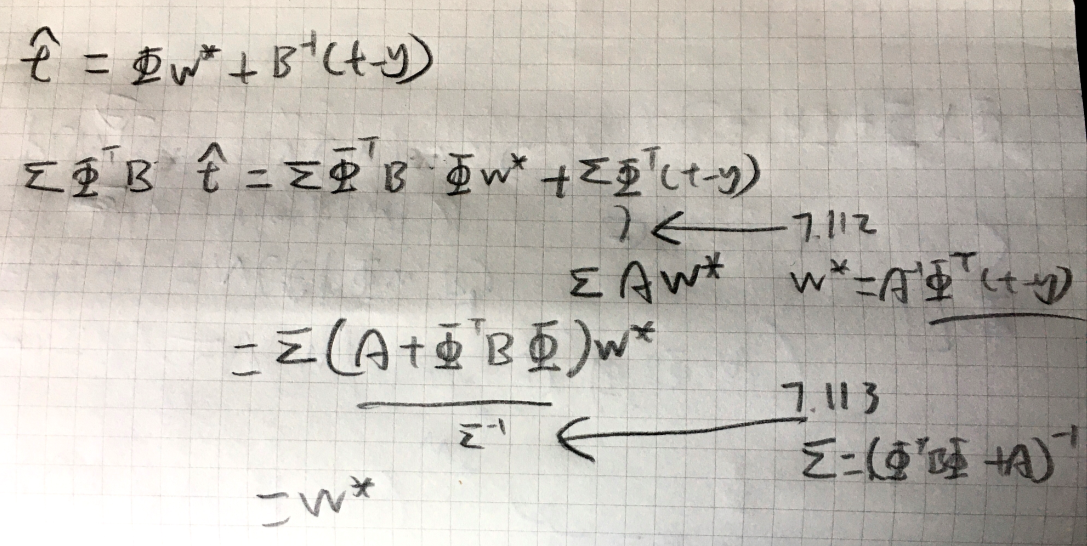 t̂ = Φw* + B⁻¹(t-y)
ΣΦᵀB t̂ = ΣΦᵀB Φw* + ΣΦᵀ(t-y)
← 7.112
ΣAw* w* = A⁻¹Φᵀ(t-y)
= Σ(A+ΦᵀBΦ)w*
Σ⁻¹ ← 7.113
Σ=(ΦᵀBΦ+A)⁻¹
= w*